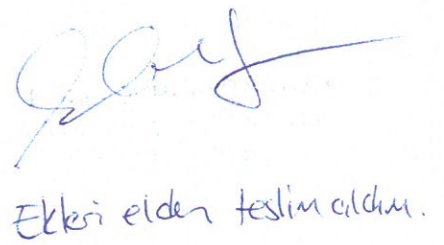 Ekleri elden teslim aldım.